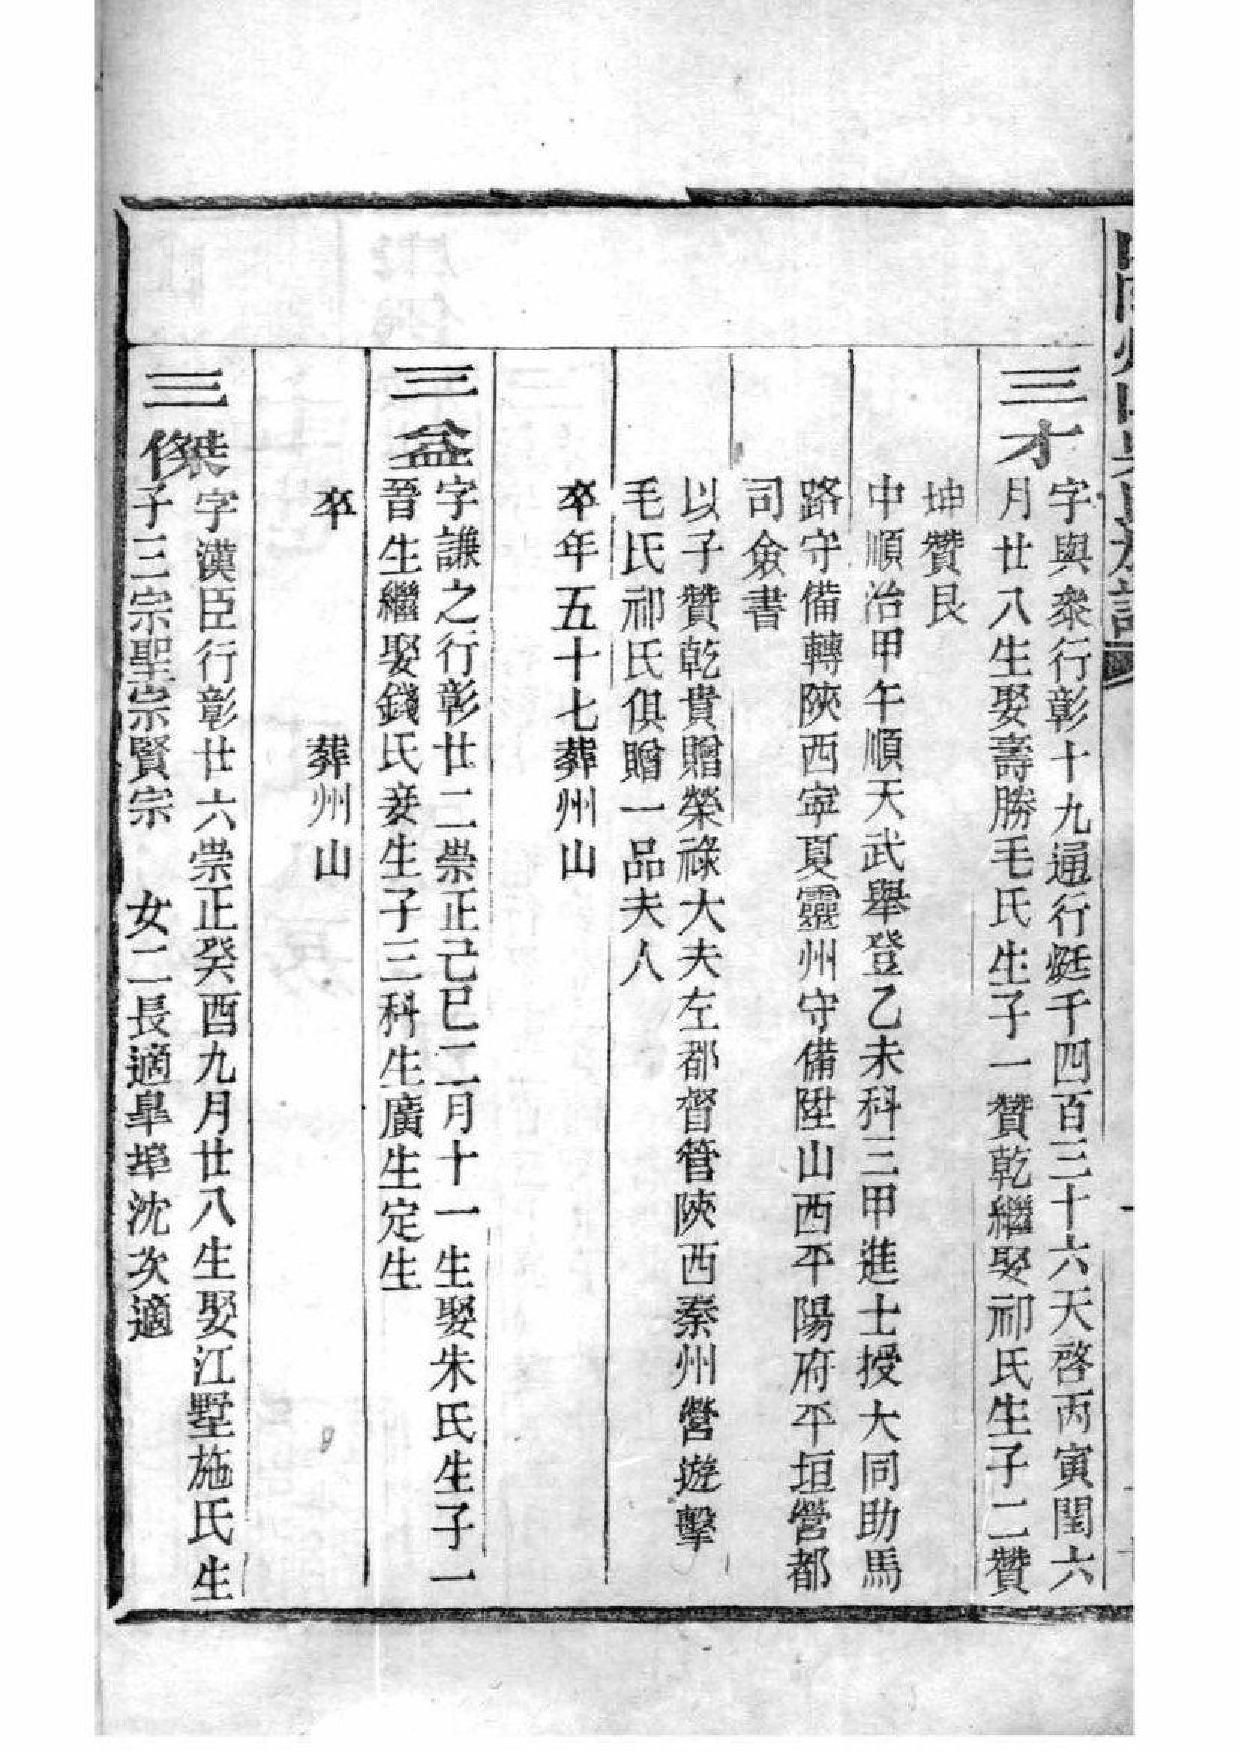 州山吳氏族譜
三才
字與衆行彰十九通行娗千四百三十六天啓丙寅閏六
月廿八生娶壽勝毛氏生子一贊乾繼娶祁氏生子二贊
坤贊艮
中順治甲午順天武舉登乙未科三甲進士授大同助馬
路守備轉陜西寧夏靈州守備陞山西平陽府平垣營都
司僉書
以子贊乾貴贈榮祿大夫左都督管陜西秦州營遊擊
毛氏祁氏俱贈一品夫人
卒年五十七葬州山
三益
字謙之行彰廿二崇正己巳二月十一生娶朱氏生子一
晉生繼娶錢氏妾生子三科生廣生定生
卒 葬州山
三傑
字漢臣行彰廿六崇正癸酉九月廿八生娶江墅施氏生
子三宗聖宗賢宗 女二長適皐埠沈次適